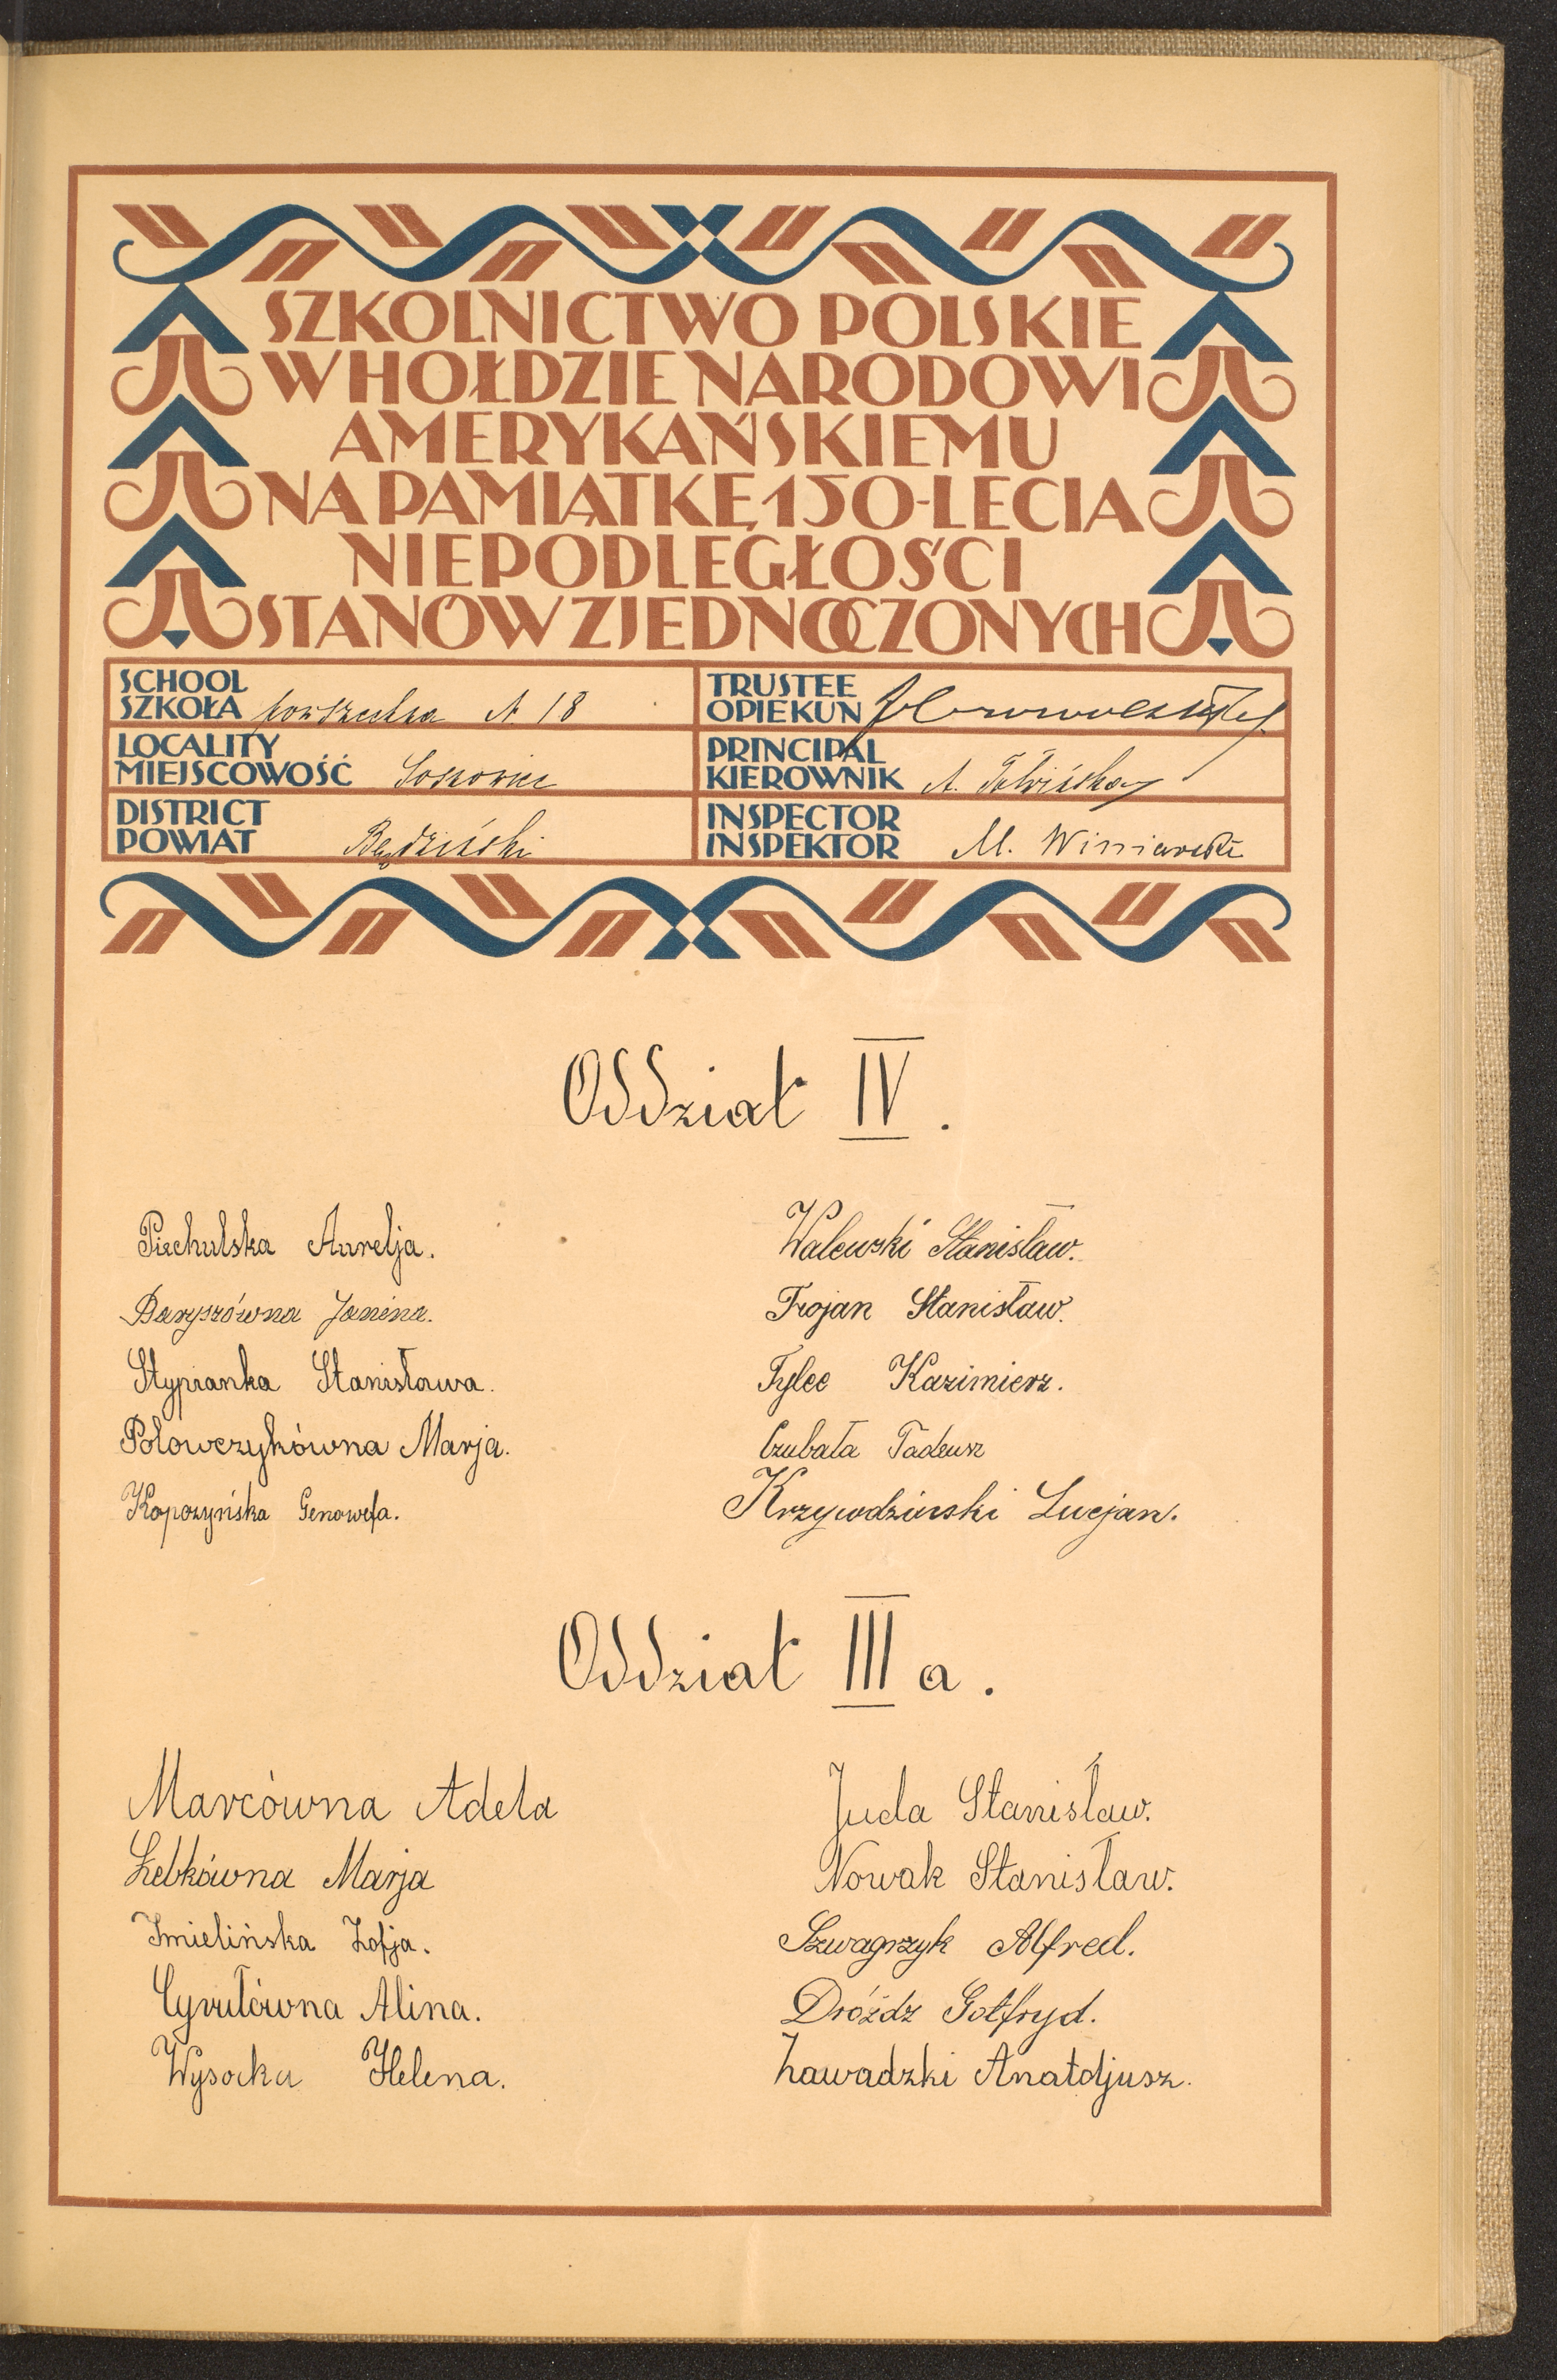 SZKOLNICTWO POLSKIE
W HOŁDZIE NARODOWI
AMERYKAŃSKIEMU
NA PAMIĄTKĘ 150-LECIA
NIEPODLEGŁOŚCI
STANÓW ZJEDNOCZONYCH
SCHOOL
SZKOŁA powszechna N 18
LOCALITY
MIEJSCOWOŚĆ Sosnowiec
DISTRICT
POWIAT Będziński
TRUSTEE
OPIEKUN
PRINCIPAL
KIEROWNIK A.
INSPECTOR
INSPEKTOR M. Winiarski
Oddział IV.
Piechulska Aurelja.
Baryszówna Janina.
Stypianka Stanisława.
Połowczykówna Marja.
Kopczyńska Genowefa.
Walewski Stanisław.
Trojan Stanisław.
Tylec Kazimierz.
Czubała Tadeusz
Krzywdziński Lucjan.
Oddział III a.
Marcówna Adela
Łebkówna Marja
Imielińska Zofja.
Cyrulówna Alina.
Wysocka Helena.
Juda Stanisław.
Nowak Stanisław.
Szwagrzyk Alfred.
Dróżdz Gotfryd.
Zawadzki Anatoljusz.